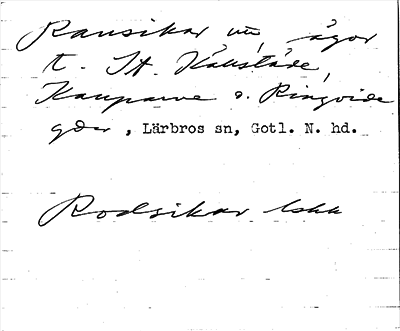 Ransikar un, ägor
t. St. Källstäde,
Kauparve o. Ringvide
gdar, Lärbros sn, Gotl. N. hd.
Rodsikar